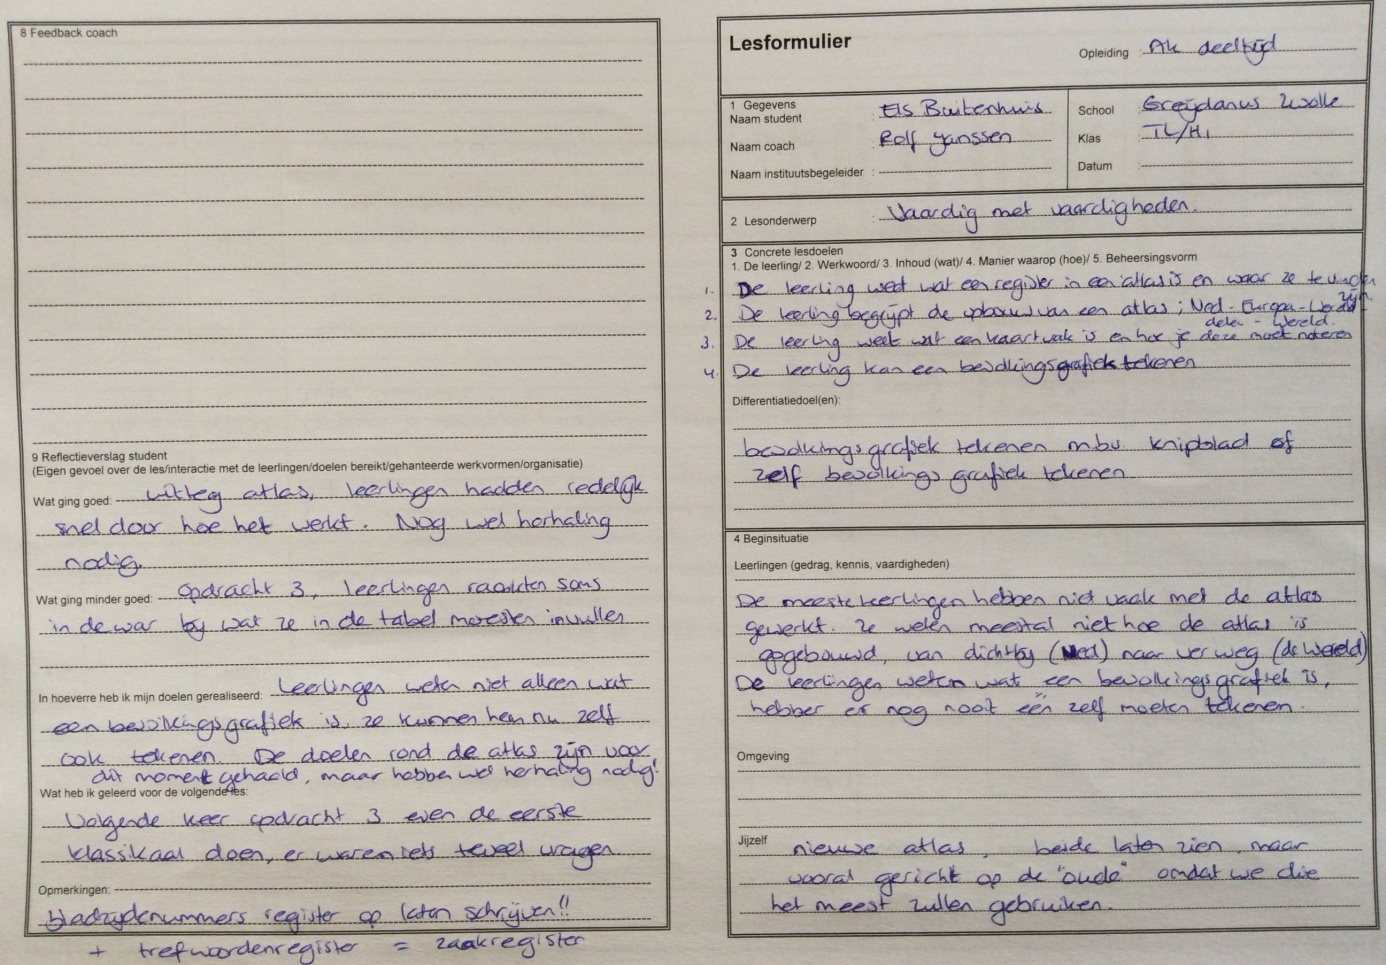 8 Feedback coach
9 Reflectieverslag student
(Eigen gevoel over de les/interactie met de leerlingen/doelen bereikt/gehanteerde werkvormen/organisatie)
Wat ging goed: uitleg atlas, leerlingen hadden redelijk
snel door hoe het werkt. Nog wel herhaling
nodig.
Wat ging minder goed: opdracht 3, leerlingen raakten soms
in de war by wat ze in de tabel moesten invullen
In hoeverre heb ik mijn doelen gerealiseerd: Leerlingen weten niet alleen wat
een bevolkingsgrafiek is, ze kunnen hem nu zelf
ook tekenen. De doelen rond de atlas zijn voor
dit moment gehaald, maar hebben wel herhaling nodig!
Wat heb ik geleerd voor de volgende les:
Volgende keer opdracht 3 even de eerste
klassikaal doen, er waren iets teveel vragen
Opmerkingen:
bladzijdenummers register op laten schrijven!!
+ trefwoordenregister = zaakregister
Lesformulier
Opleiding : AK deeltijd
1 Gegevens
Naam student : Els Buitenhuis
Naam coach Rolf Janssen
Naam instituutsbegeleider :
School : Greijdanus Zwolle
Klas : TL/H1
Datum :
2 Lesonderwerp : Vaardig met vaardigheden.
3 Concrete lesdoelen
1. De leerling/ 2. Werkwoord/ 3. Inhoud (wat)/ 4. Manier waarop (hoe)/ 5. Beheersingsvorm
1. De leerling weet wat een register in een atlas is en waar ze te vinden zijn.
2. De leerling begrijpt de opbouw van een atlas; Ned - Europa - Werelddelen - Wereld.
3. De leerling weet wat een kaartvak is en hoe je deze moet noteren
4. De leerling kan een bevolkingsgrafiek tekenen
Differentiatiedoel(en):
bevolkingsgrafiek tekenen m.b.v. knipblad of
zelf bevolkings grafiek tekenen
4 Beginsituatie
Leerlingen (gedrag, kennis, vaardigheden)
De meeste leerlingen hebben niet vaak met de atlas
gewerkt. Ze weten meestal niet hoe de atlas is
opgebouwd, van dichtby (Ned) naar ver weg (de wereld)
De leerlingen weten wat een bevolkingsgrafiek is,
hebben er nog nooit één zelf moeten tekenen.
Omgeving
Jijzelf nieuwe atlas, beide laten zien, maar
vooral gericht op de "oude" omdat we die
het meest zullen gebruiken.